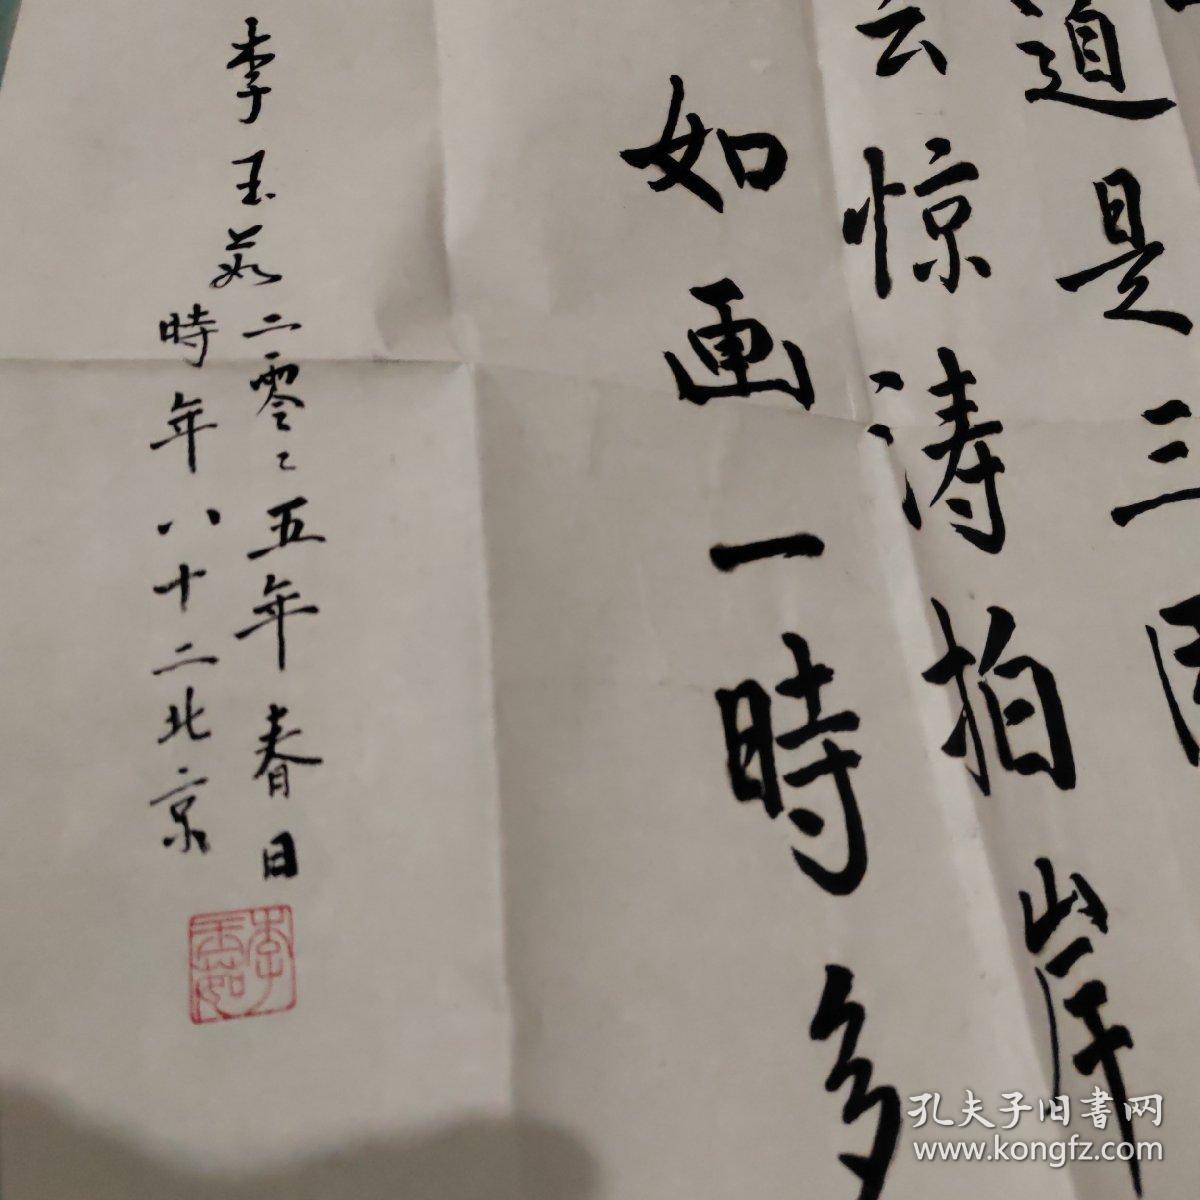 道是三国
云惊涛拍岸
如画一時多
李玉茹二零零五年春日
時年八十二北京
李玉茹
孔夫子旧書网
www.kongfz.com